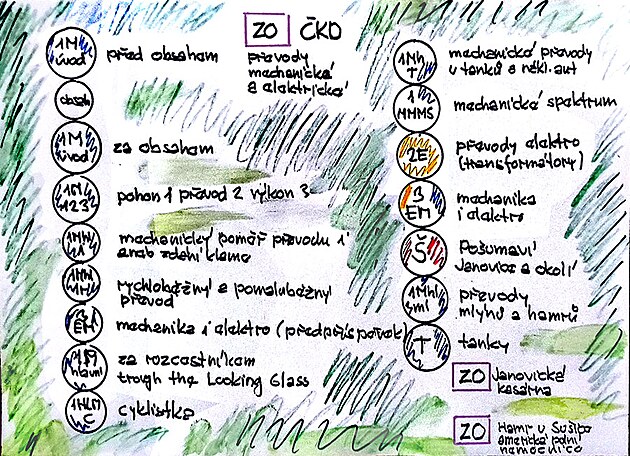 ZO ČKD
převody
mechanické
a elektrické
1M úvod před obsahem
obsah
1M úvod za obsahem
1M 123 pohon 1 převod 2 výkon 3
mechanický poměr převodu i
rychloběžný a pomaluběžný
převod
3 EM mechanika i elektro
1M hlavní za rozcestníkem
trough the Looking Glass
C cyklistika
1Mh T mechanické převody
u tanků a nákl. aut
1 MMMS mechanické spektrum
2E převody elektro
(transformátory)
3 EM mechanika
i elektro
Š Pošumaví
Janovice a okolí
převody
mlýnů a hamrů
T tanky
ZO Janovické
kasárna
ZO Hamr u Sušice
americká polní
nemocnice